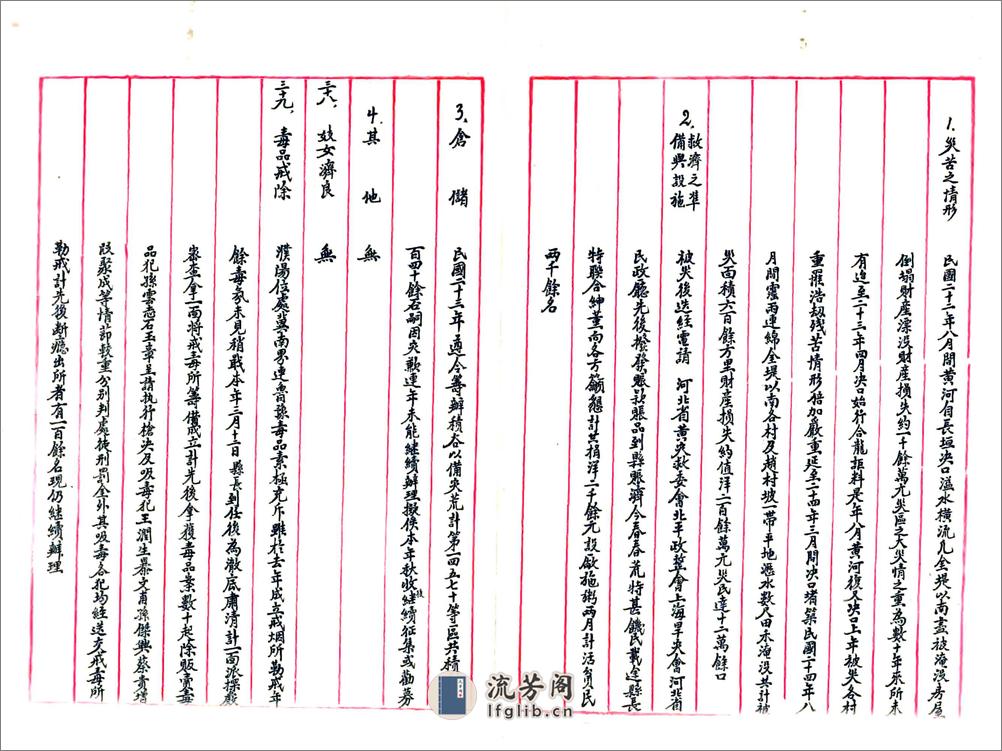 1.災苦之情形
民國二十二年八月間黃河自長垣決口溢水橫流凡金堤以南盡被淹沒房屋
倒塌財產漂沒財產損失約一千餘萬元災區之大災情之重為數十年來所未
有迨至二十三年四月決口始行合龍詎料是年八月黃河復又決口上年被災各村
重罹浩劫殘苦情形倍加嚴重延至二十四年三月間決口堵築民國二十四年八
月間霪雨連綿金堤以南各村及趙村坡一帶平地漲水數尺田禾淹沒共計被
災面積六百餘方里財產損失約值洋二百餘萬元災民達十二萬餘口
2.救濟之準備與設施
被災後迭經電請 河北省黃災救委會北平政整會上海旱災會河北省
民政廳先後撥發賬款賬品到縣賬濟今春春荒特甚饑民載途縣長
特聯合紳董向各方籲懇計共捐洋二千餘元設廠施粥兩月計活貧民
兩千餘名
3.倉儲
民國二十三年遵令籌辦積谷以備災荒計第一四五七十等區共積
百四十餘石嗣因災歉連年未能繼續辦理擬俟本年秋收後繼續征集或勸募
4.其他 無
三十八、妓女濟良 無
三十九、毒品戒除
濮陽位處冀南界連魯豫毒品素極充斥雖於去年成立戒烟所勒戒年
餘毒氛未見稍戢本年三月十二日縣長到任後為澈底肅清計一面派探嚴
密查拿一面將戒毒所籌備成立計先後拿獲毒品案數十起除販賣毒
品犯孫雲石玉章呈請執行槍決及吸毒犯王潤生暴文甫孫傑興蔡青增
段聚成等情節較重分別判處徒刑罰金外其吸毒各犯均經送交戒毒所
勒戒計先後斷癮出所者有一百餘名現仍繼續辦理
流芳阁
lfglib.cn